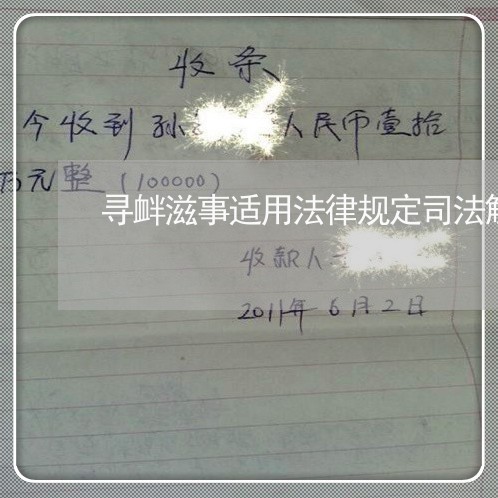 收条
今收到孙 人民币壹拾
万元整（100000）
寻衅滋事适用法律规定司法解
收款人
2011年6月2日